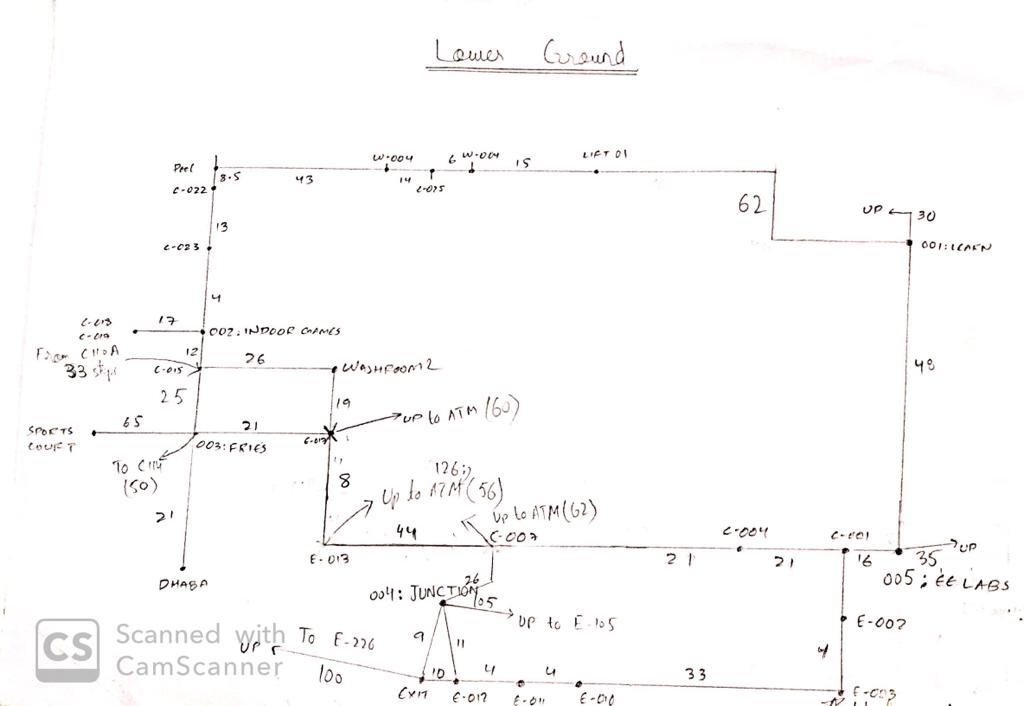 Lower Ground
Pool
8.5
43
W-004
14
C-025
6
W-004
15
LIFT 01
C-022
62
UP
30
13
001: LEARN
C-023
4
C-013
17
002: INDOOR GAMES
From C110A
12
33 steps
C-015
26
WASHROOM 2
49
25
19
up to ATM (60)
65
21
SPORTS
COURT
003: FRIES
C-017
To C114
(50)
11
126;
8
Up to ATM (56)
up to ATM (62)
21
44
C-007
C-004
C-001
E-013
21
21
16
35
UP
DHABA
005: EE LABS
26
004: JUNCTION
105
UP to E-105
E-002
UP
To E-226
9
11
4
100
10
4
4
33
EXIT
E-012
E-011
E-010
E-003
CS
Scanned with
CamScanner